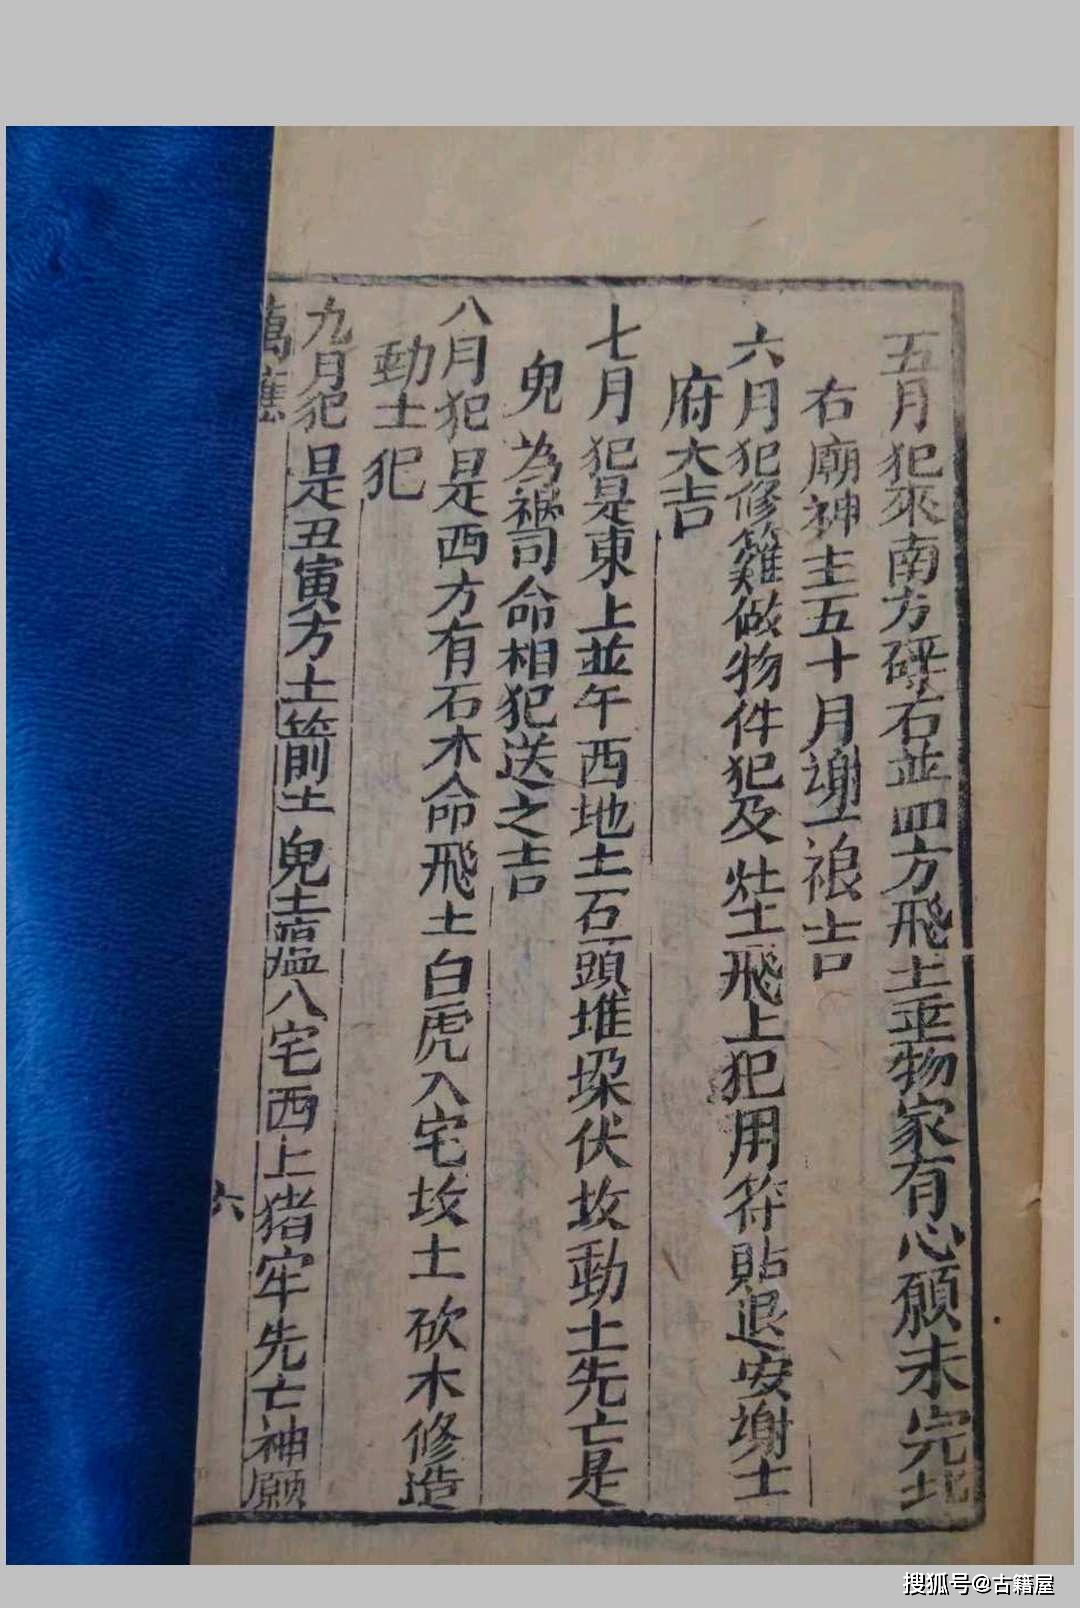 五月犯來南方硏石並四方飛土並物家有心願未完北
右廟神主五十月謝土禳吉
六月犯修籬做物件犯及灶土飛上犯用符貼退安謝土
府大吉
七月犯是東上並午西地土石頭堆垛伏坟動土先亡是
鬼為禍司命相犯送之吉
八月犯是西方有石木命飛土白虎入宅坟土砍木修造
動土犯
九月犯是丑寅方土箭土鬼土瘟八宅西上猪牢先亡神願
萬應
六
搜狐号@古籍屋